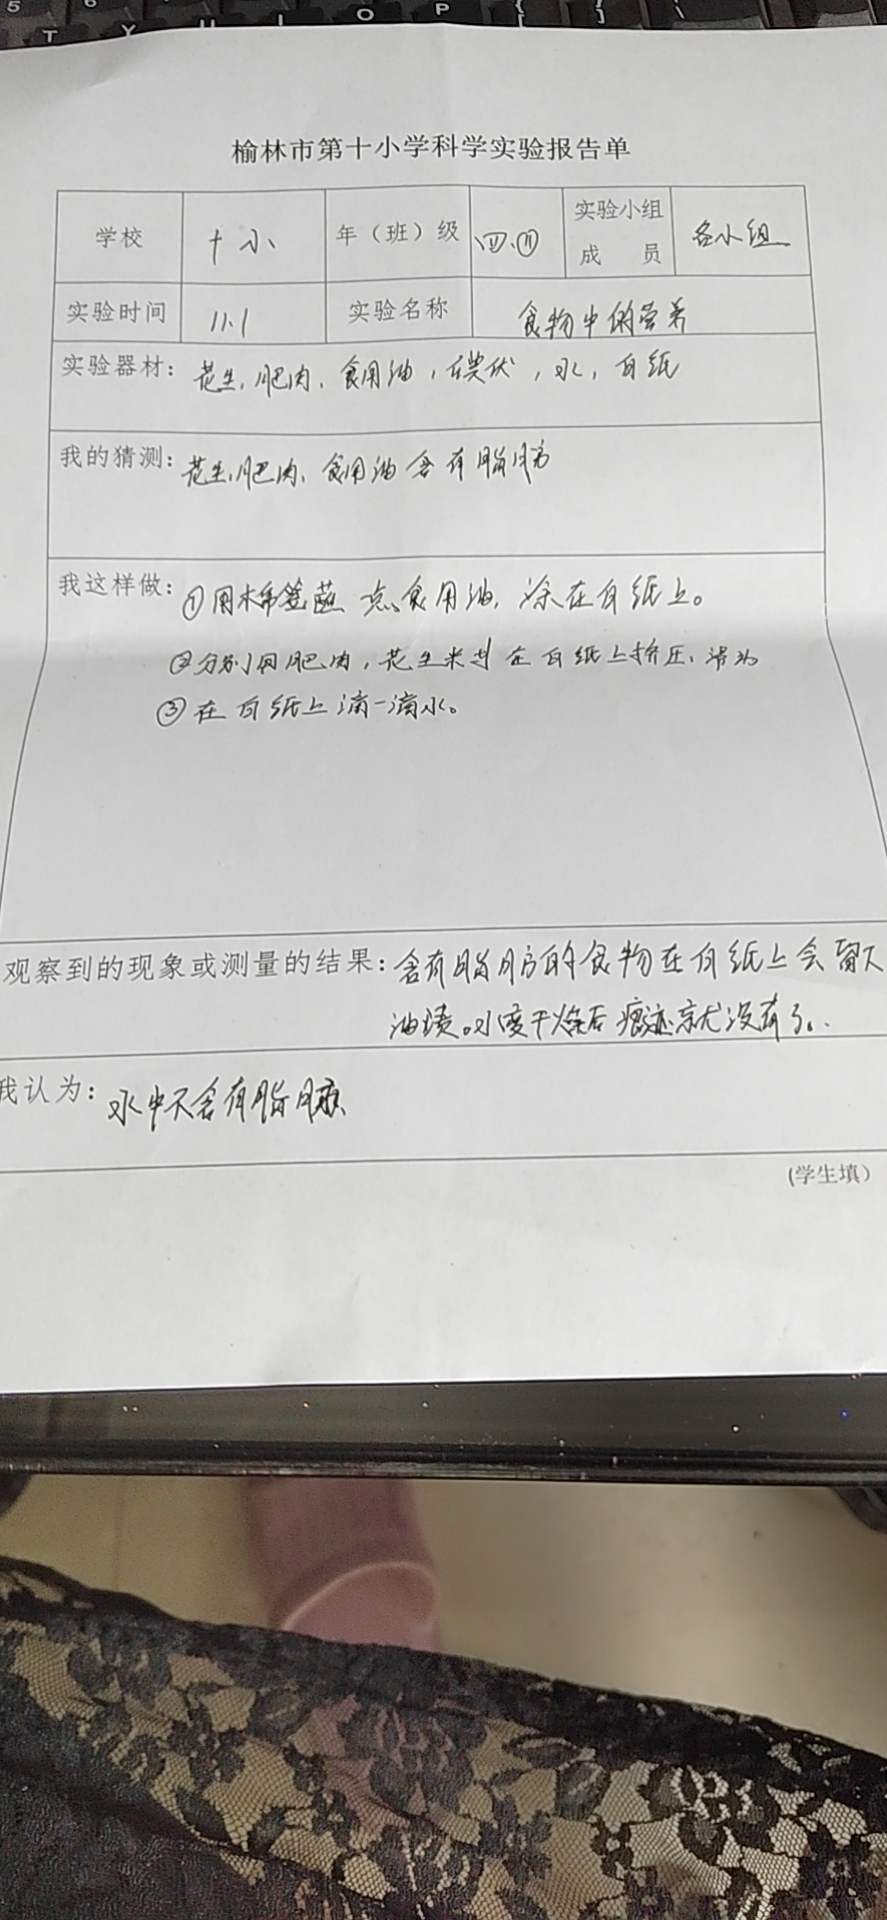 5 6
T Y U I O P { [ } ] | \
榆林市第十小学科学实验报告单
学校 十小 年（班）级 四.⑪ 实验小组成员 各小组
实验时间 11.1 实验名称 食物中的营养
实验器材：花生，肥肉，食用油，水，白纸
我的猜测：花生，肥肉，食用油含有脂肪
我这样做：①用棉签蘸点食用油，涂在白纸上。
②分别用肥肉，花生米 在白纸上挤压，
③在白纸上滴一滴水。
观察到的现象或测量的结果：含有脂肪的食物在白纸上会留下
油渍。水变干燥后痕迹就没有了。
我认为：水中不含有脂肪
(学生填）